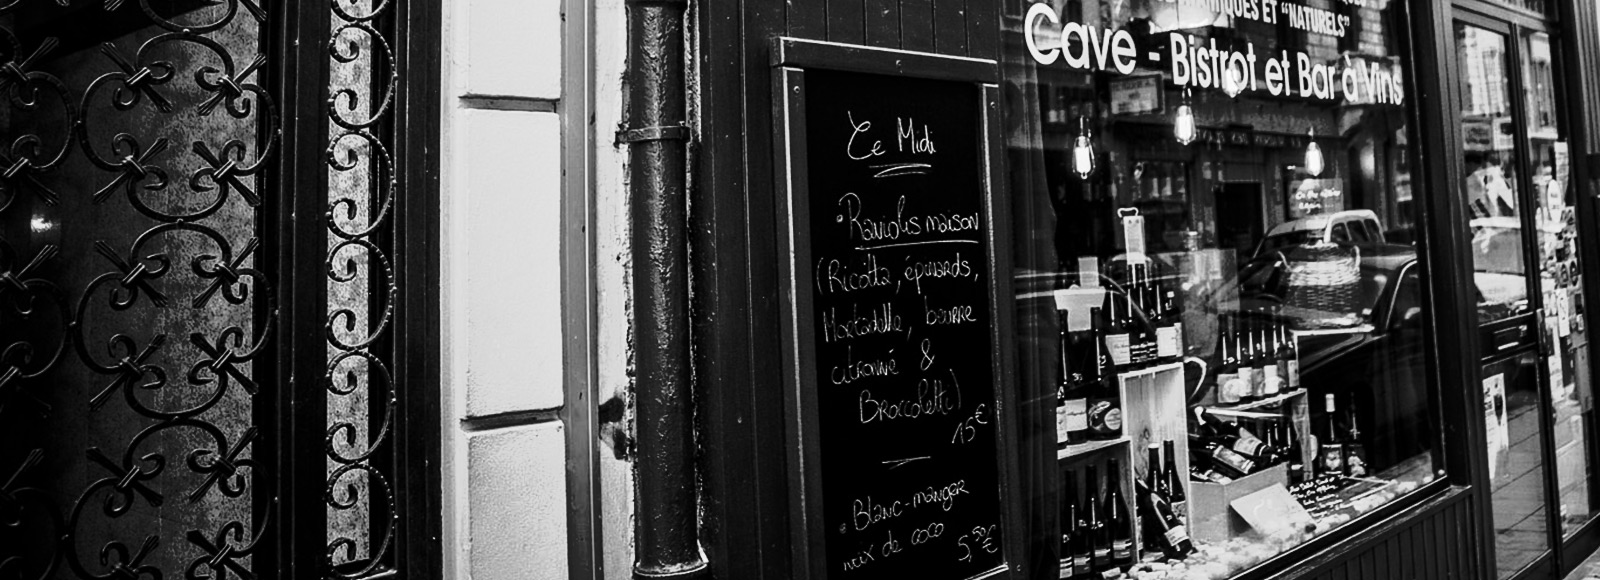 Ce Midi
• Raviolis maison
(Ricotta, épinards,
Mortadelle, beurre
citronné &
Broccoletti)
15€
• Blanc-manger
noix de coco
5,50€
ET “NATURELS”
Cave - Bistrot et Bar à Vins